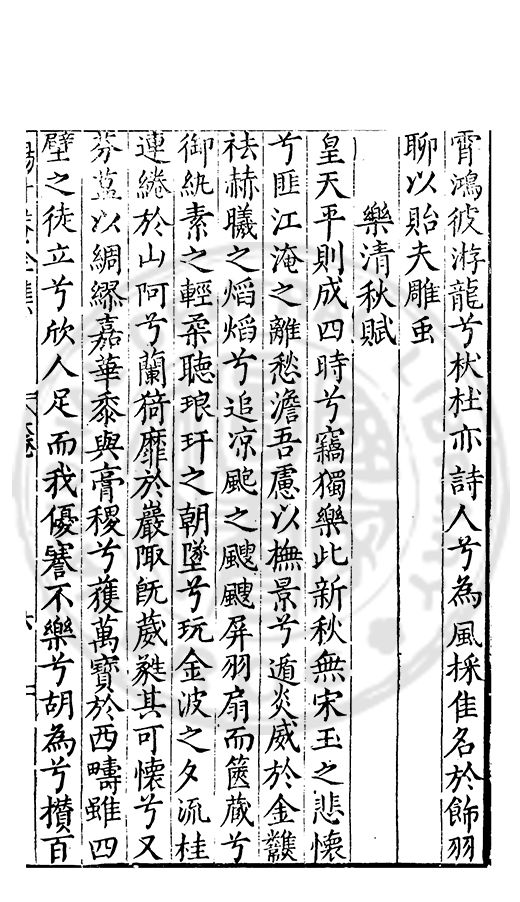 霄鴻彼游龍兮杕杜亦詩人兮為風採佳名於飾羽
聊以貽夫雕虫
樂清秋賦
皇天平則成四時兮竊獨樂此新秋無宋玉之悲懷
兮匪江淹之離愁澹吾慮以撫景兮遁炎威於金
祛赫曦之熖熖兮追凉颸之颼颼屏羽扇而篋蔵兮
御紈素之輕柔聴琅玕之朝墜兮玩金波之夕流桂
連綣於山阿兮蘭猗靡於巖陬旣葳蕤其可懷兮又
芬蒀以綢繆嘉華黍與膏稷兮獲萬寶於西疇雖四
壁之徒立兮欣人足而我優謇不樂兮胡為兮攢百